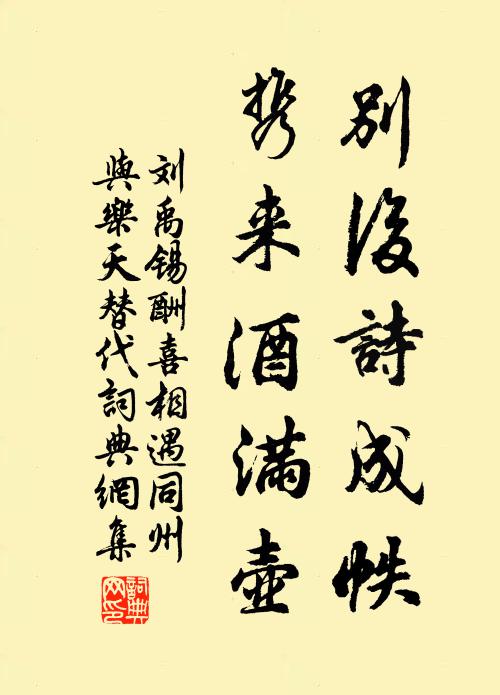 別後詩成帙
携来酒滿壺
刘禹锡酬喜相遇同州
與樂天替代詞典網集